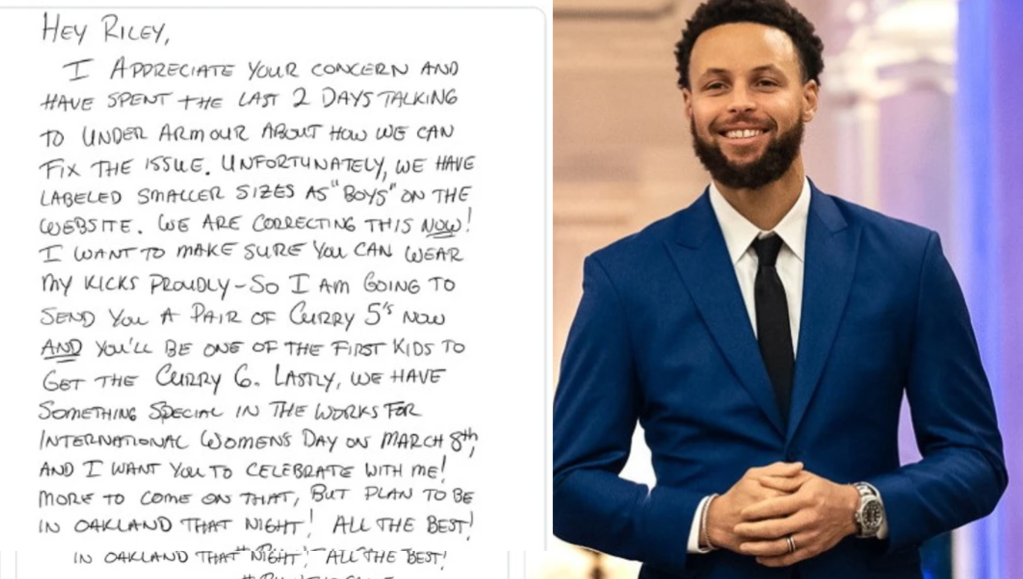 HEY RILEY,
I APPRECIATE YOUR CONCERN AND
HAVE SPENT THE LAST 2 DAYS TALKING
TO UNDER ARMOUR ABOUT HOW WE CAN
FIX THE ISSUE. UNFORTUNATELY, WE HAVE
LABELED SMALLER SIZES AS "BOYS" ON THE
WEBSITE. WE ARE CORRECTING THIS NOW!
I WANT TO MAKE SURE YOU CAN WEAR
MY KICKS PROUDLY - SO I AM GOING TO
SEND YOU A PAIR OF CURRY 5's NOW
AND YOU'LL BE ONE OF THE FIRST KIDS TO
GET THE CURRY 6. LASTLY, WE HAVE
SOMETHING SPECIAL IN THE WORKS FOR
INTERNATIONAL WOMENS DAY ON MARCH 8th,
AND I WANT YOU TO CELEBRATE WITH ME!
MORE TO COME ON THAT, BUT PLAN TO BE
IN OAKLAND THAT NIGHT! ALL THE BEST!
IN OAKLAND THAT NIGHT! ALL THE BEST!